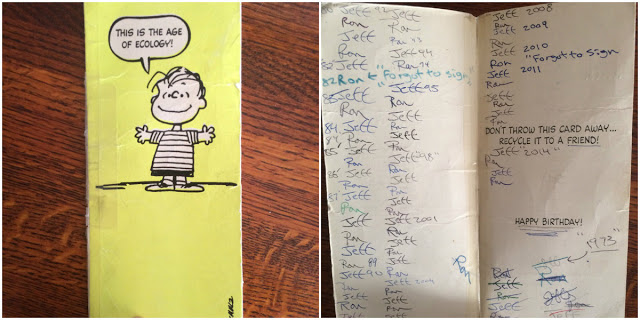 THIS IS THE AGE
OF ECOLOGY!
92 Jeff
Ron
Ron 93
Ron Jeff 94
82 Jeff Ron 94
82 Ron & Forgot to sign"
Jeff 95
Ron
Ron Jeff
84 Jeff Ron
Ron Jeff
85 Jeff Ron
Ron Jeff "98"
86 Jeff Ron
Ron Jeff
87 Jeff Ron
Ron Ron
Jeff Jeff 2001
Ron Ron
Jeff Jeff
Ron Ron
Jeff Jeff
Ron 89 Jeff
Jeff 90 Ron
Jeff 2004
Jeff Ron
Ron Jeff
Ron
Jeff 2008
Ron
Jeff 2009
Ron
Jeff 2010
Ron "Forgot to Sign
Jeff 2011
Ron
Jeff
Ron
Jeff
Ron
DON'T THROW THIS CARD AWAY...
RECYCLE IT TO A FRIEND!
Jeff "2014"
Ron
Jeff
Ron
HAPPY BIRTHDAY!
"1973"
Ron
Jeff
Ron
Jeff